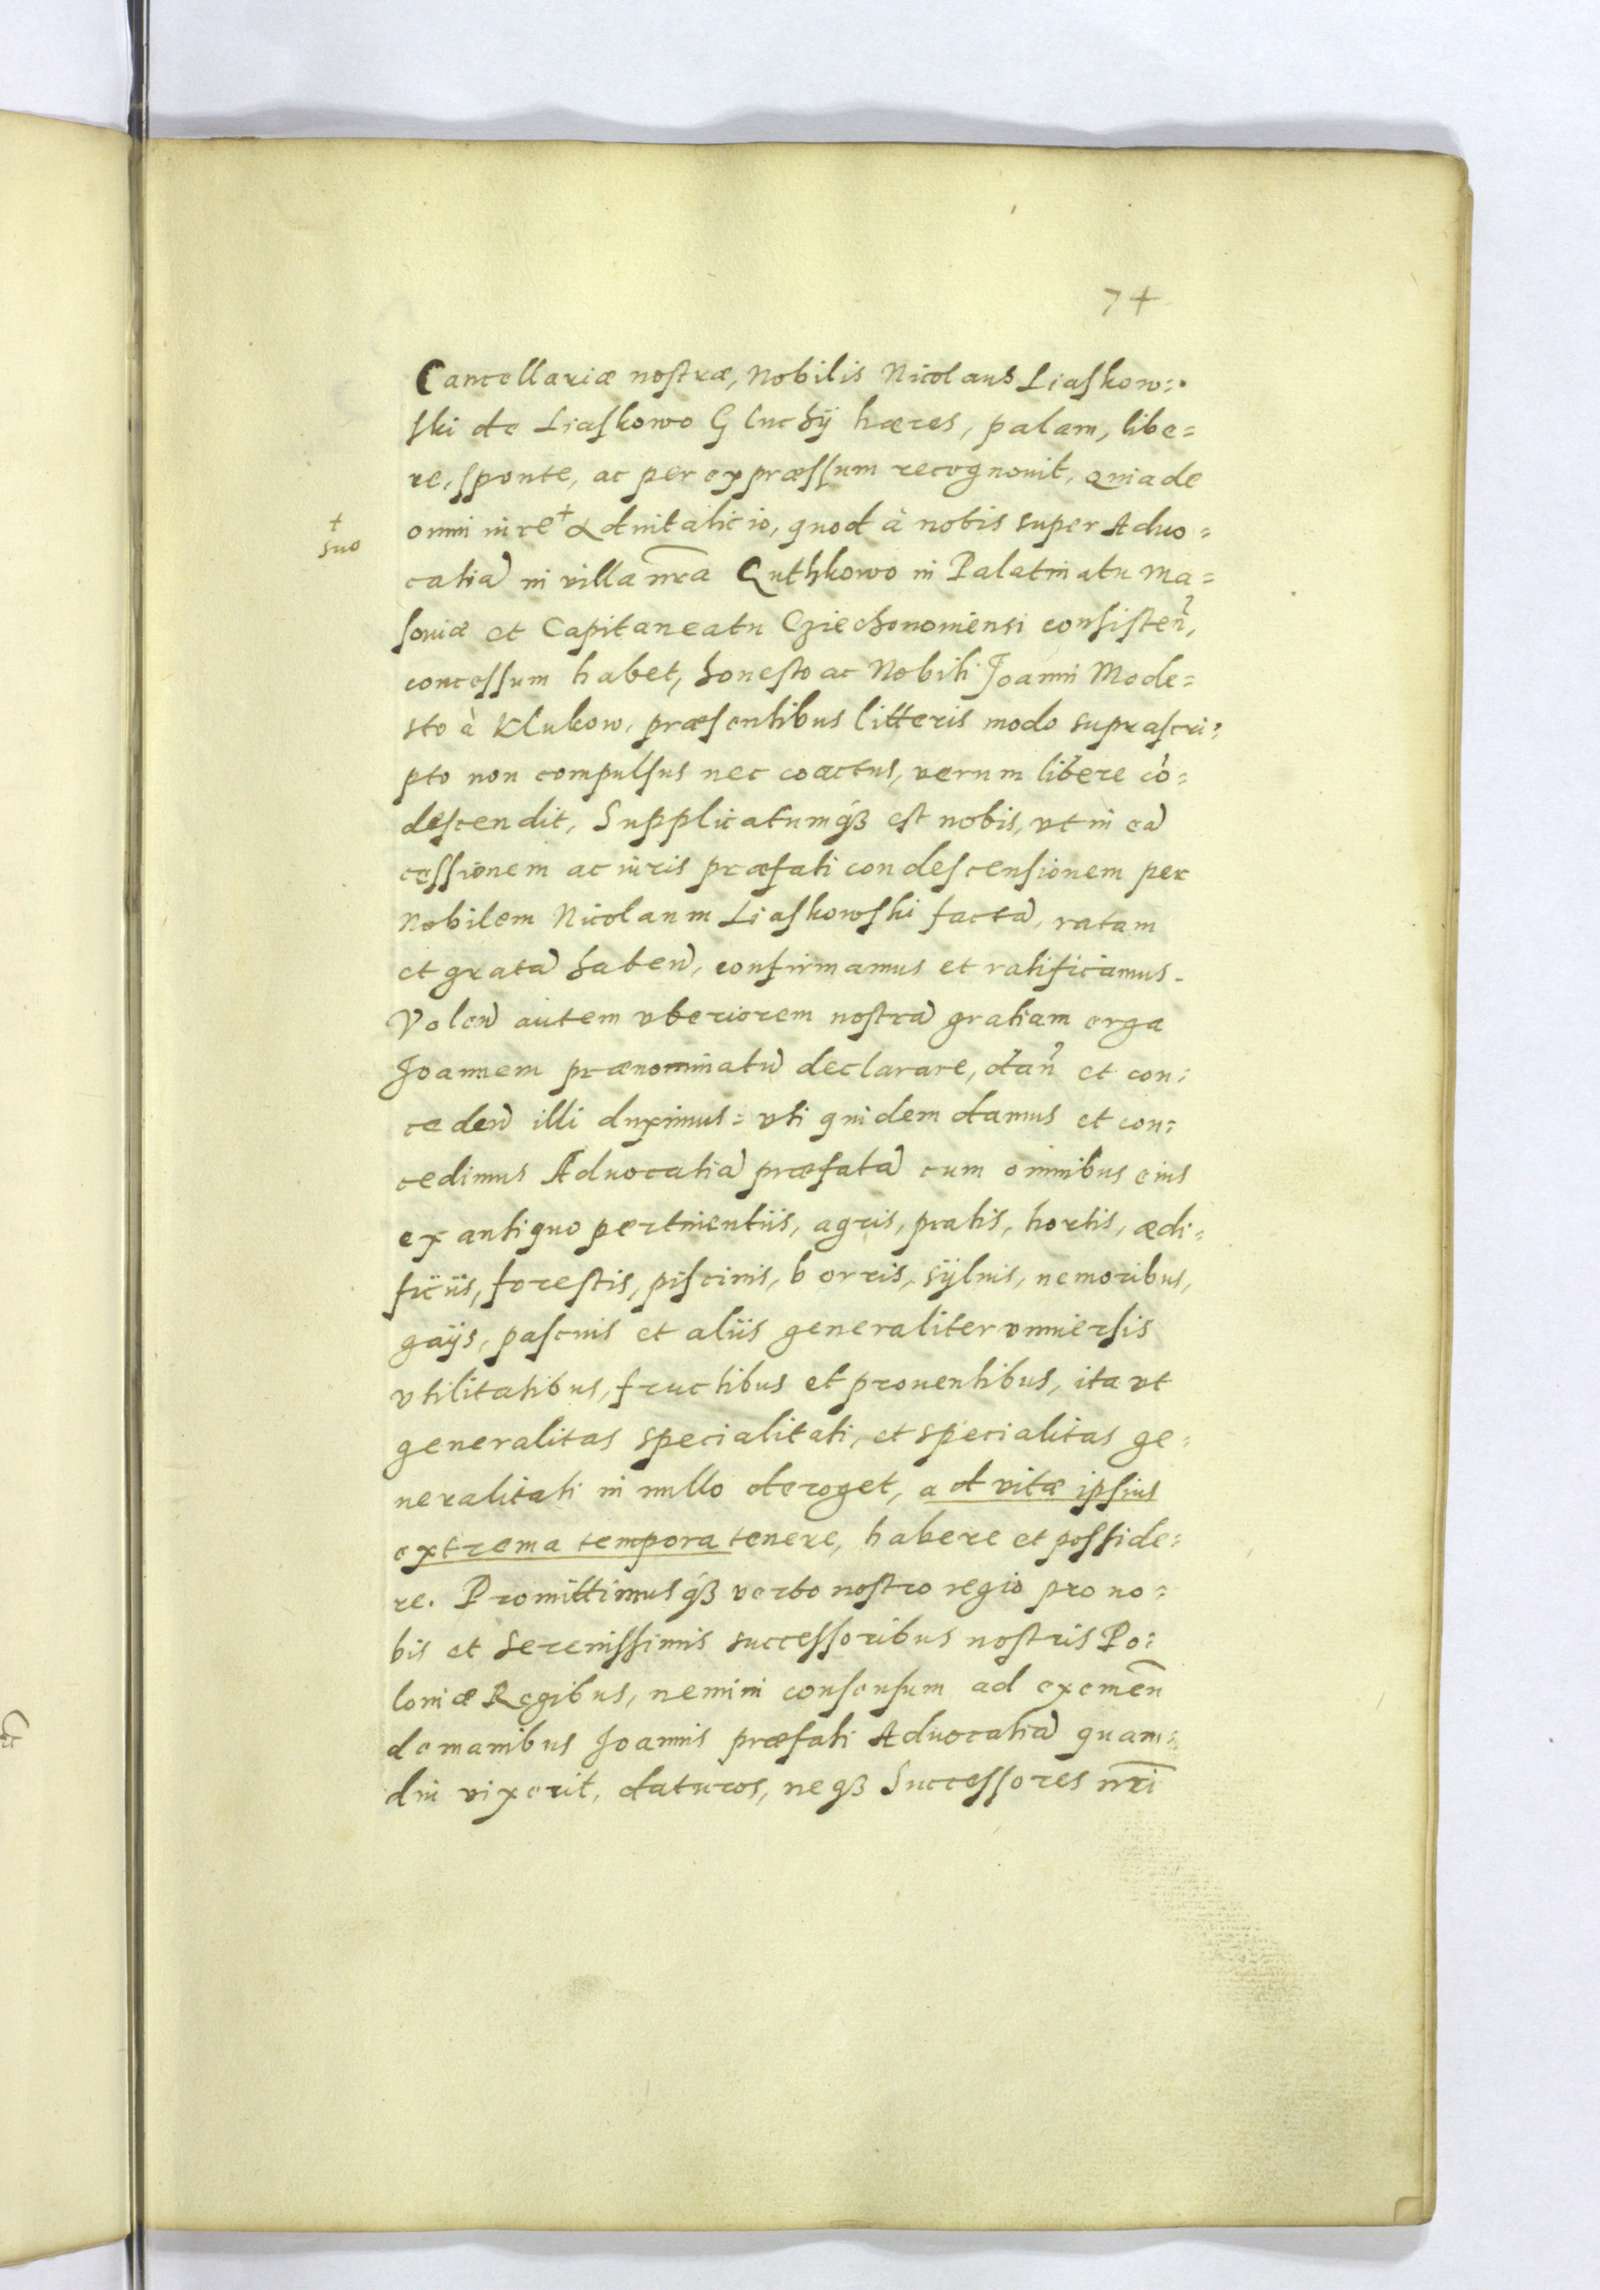 74
Cancellariæ nostræ, Nobilis Nicolaus Liaskow:
ski de Liaskowo Gluchÿ hæres, palam, libe=
re, sponte, ac per expræssum recognouit, quia de
omni iure + aduitalicio, quod à nobis super Aduo=
+
suo
catiã in villa nr̃a Quthkowo in Palatinatu Ma=
souiæ et Capitaneatu Cziechonouiensi consisteñ,
concessum habet, honesto ac Nobili Joanni Mode=
sto à Klukow, præsentibus litteris modo suprascri:
pto non compulsus nec coactus, verum libere cò=
descendit, Supplicatumqꝫ est nobis, vt in eã
cessionem ac iuris præfati condescensionem per
Nobilem Nicolaum Liaskowski factã, ratam
et gratã habeñ, confirmamus et ratificamus.
Voleñ autem vberiorem nostrã gratiam erga
Joannem prænominatũ declarare, dañ et con:
cedeñ illi duximus: vti quidem damus et con:
cedimus Aduocatiã præfatã cum omnibus eius
ex antiquo pertinentiis, agris, pratis, hortis, ædi=
ficiis, forestis, piscinis, borris, sÿluis, nemoribus,
gaÿs, pascuis et aliis generaliter vniuersis
vtilitatibus, fructibus et prouentibus, ita vt
generalitas specialitati, et specialitas ge=
neralitati in nullo deroget, ad vitæ ipsius
extrema tempora tenere, habere et posside:
re. Promittimusqꝫ verbo nostro regio pro no=
bis et Serenissimis successoribus nostris Po:
loniæ Regibus, nemini consensum ad exemeñ
de manibus Joannis præfati Aduocatiã quam:
diu vixerit, daturos, neqꝫ Successores nr̃i